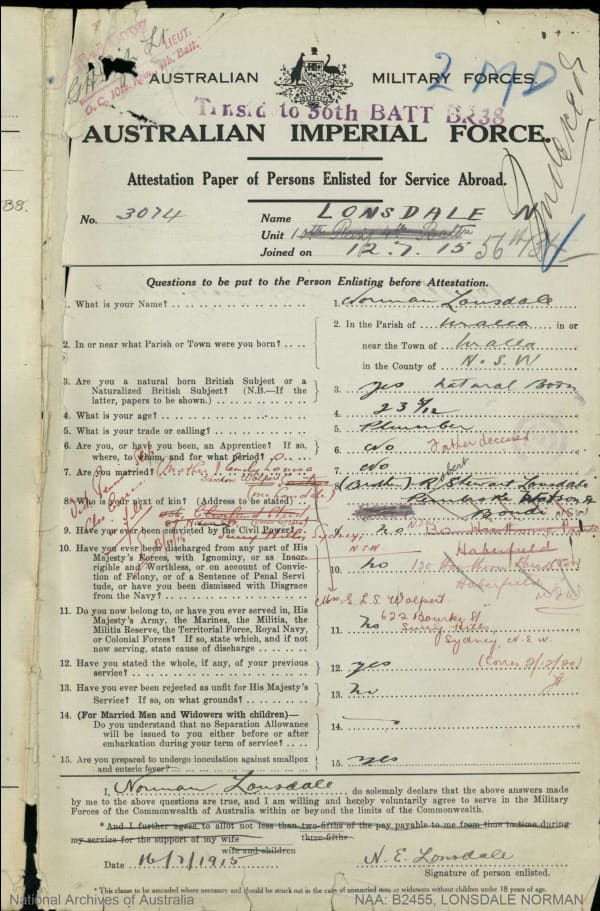 LIEUT.
AUSTRALIAN MILITARY FORCES.
2 MD
Transfd to 56th BATT
AUSTRALIAN IMPERIAL FORCE.
Attestation Paper of Persons Enlisted for Service Abroad.
No. 3074
Name LONSDALE N
Unit
56th Bn
Joined on 12.7.15
Questions to be put to the Person Enlisting before Attestation.
1. What is your Name? 1. Norman Lonsdale
2. In or near what Parish or Town were you born? 2. In the Parish of Uralla in or
near the Town of Uralla
in the County of N.S.W
3. Are you a natural born British Subject or a
Naturalized British Subject? (N.B.—If the
latter, papers to be shown.) 3. Yes Natural Born
4. What is your age? 4. 23
5. What is your trade or calling? 5. Plumber
6. Are you, or have you been, an Apprentice? If so,
where, to whom, and for what period? 6. No
Father deceased
7. Are you married? 7. No
(Mother
8. What is your next of kin? (Address to be stated) 8. (Brother) Robert Stewart Lonsdale
Bondi N.S.W
9. Have you ever been convicted by the Civil Power? 9. no
Surry Hills, Sydney,
N.S.W
Haberfield
10. Have you ever been discharged from any part of His
Majesty's Forces, with Ignominy, or as Incor-
rigible and Worthless, or on account of Convic-
tion of Felony, or of a Sentence of Penal Servi-
tude, or have you been dismissed with Disgrace
from the Navy? 10. no
Haberfield
N.S.W
Mrs. E. L. S. Wolpert
622 Bourke St
Surry Hills,
Sydney, N.S.W.
11. Do you now belong to, or have you ever served in, His
Majesty's Army, the Marines, the Militia, the
Militia Reserve, the Territorial Force, Royal Navy,
or Colonial Forces? If so, state which, and if not
now serving, state cause of discharge 11. no
12. Have you stated the whole, if any, of your previous
service? 12. yes
13. Have you ever been rejected as unfit for His Majesty's
Service? If so, on what grounds? 13. no
14. (For Married Men and Widowers with children)—
Do you understand that no Separation Allowance
will be issued to you either before or after
embarkation during your term of service? 14.
15. Are you prepared to undergo inoculation against smallpox
and enteric fever? 15. yes
I, Norman Lonsdale do solemnly declare that the above answers made
by me to the above questions are true, and I am willing and hereby voluntarily agree to serve in the Military
Forces of the Commonwealth of Australia within or beyond the limits of the Commonwealth.
*And I further agree to allot not less than two-fifths of the pay payable to me from time to time during
three-fifths
my service for the support of my wife
wife and children
Date 16/7/1915 N. E. Lonsdale
Signature of person enlisted.
*This clause to be amended where necessary and should be struck out in the case of unmarried men or widowers without children under 18 years of age.
National Archives of Australia NAA: B2455, LONSDALE NORMAN